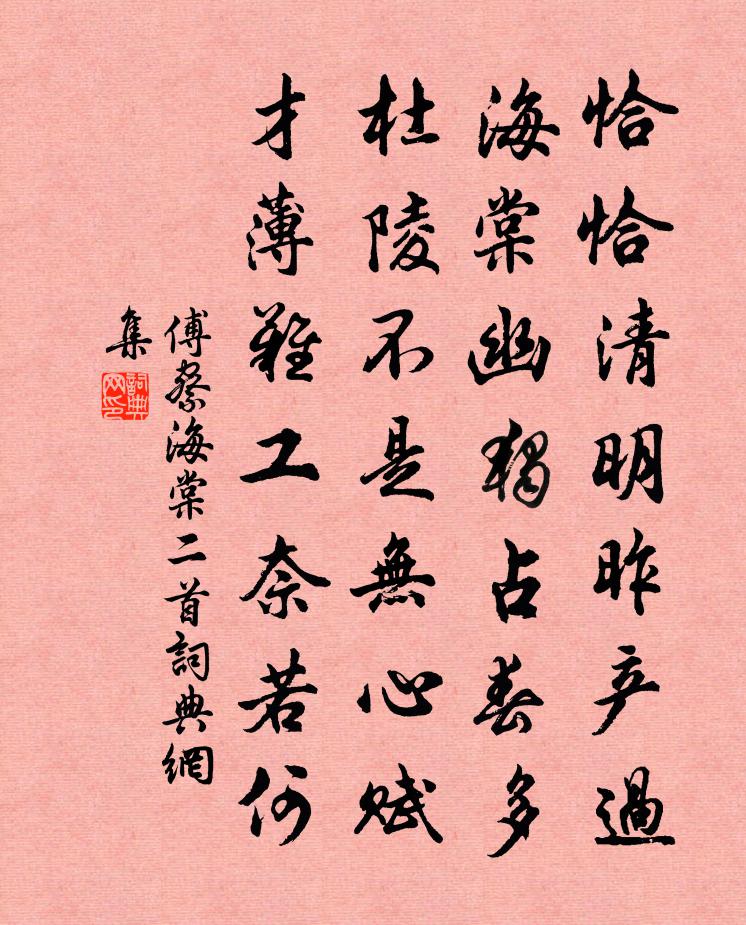 恰恰清明昨产過
海棠幽獨占春多
杜陵不是無心賦
才薄難工奈若何
傅察海棠二首詞典網
集
詞典
网印